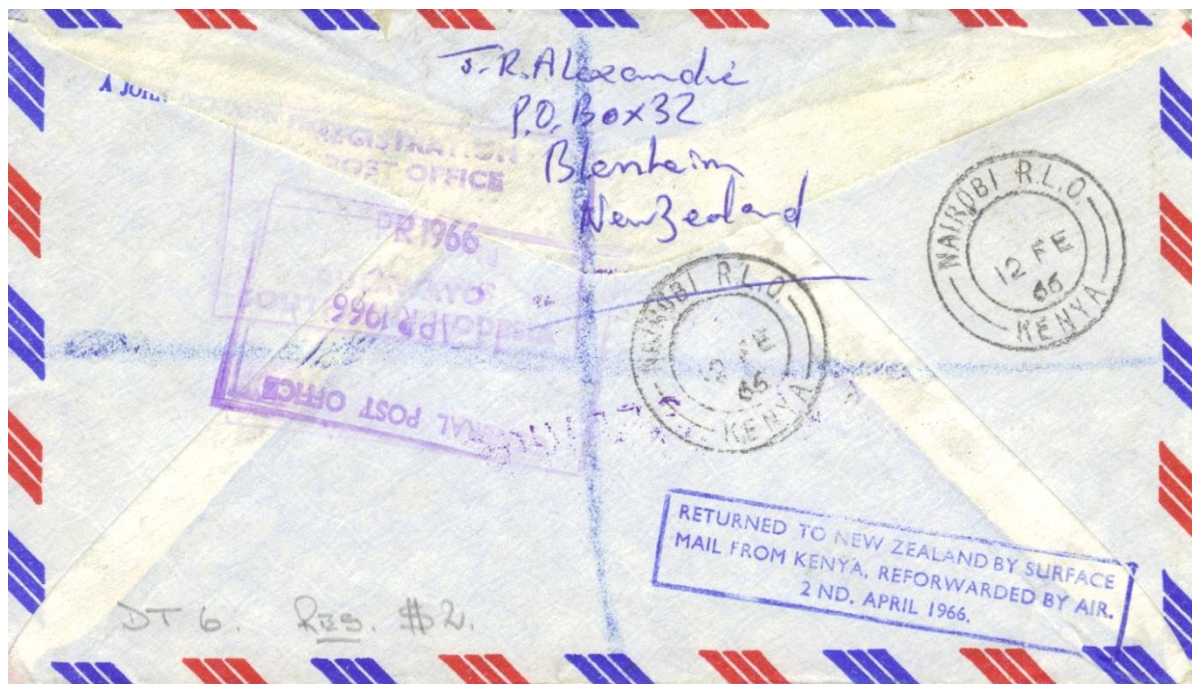 J.R. Alexandre
P.O. Box 32
Blenheim
New Zealand
A JOHN
REGISTRATION
POST OFFICE
PR 1966
APR 1966
POST OFFICE
NAIROBI R.L.O.
12 FE
66
KENYA
NAIROBI R.L.O.
12 FE
66
KENYA
RETURNED TO NEW ZEALAND BY SURFACE
MAIL FROM KENYA, REFORWARDED BY AIR.
2 ND. APRIL 1966.
DT 6. RES. $2.